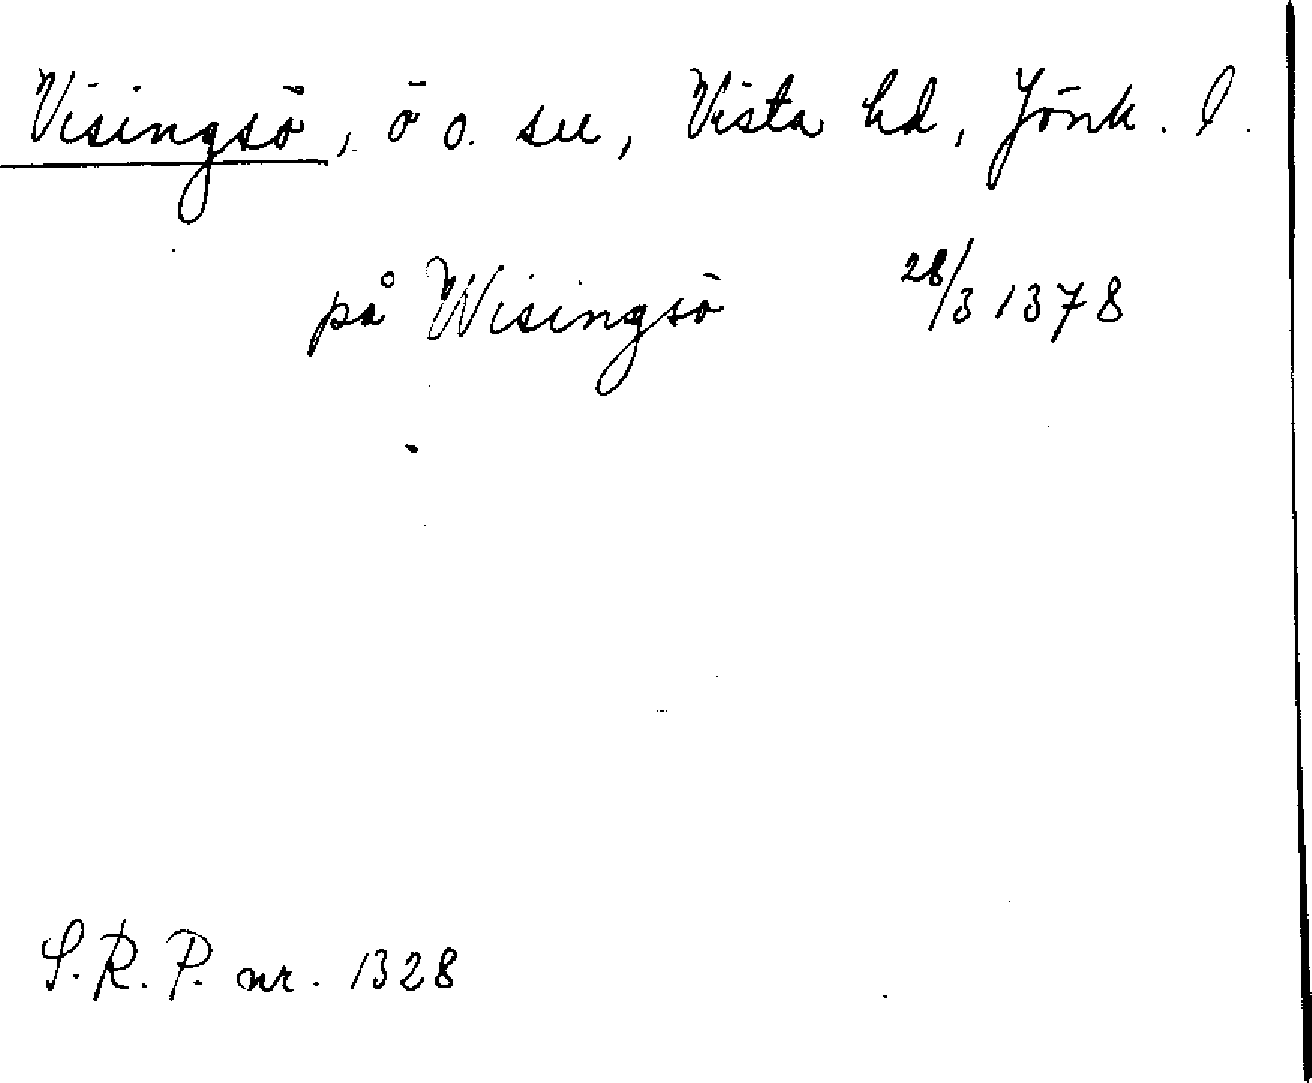 Visingsö, ö o. sn, Vista hd, Jönk. l.
på Wisingsö 28/3 1378
S.R.P. nr. 1328